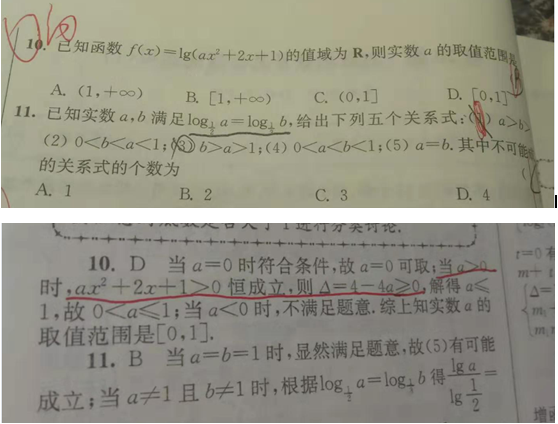 10. 已知函数 f(x)=lg(ax²+2x+1)的值域为 R,则实数 a 的取值范围是
A. (1,+∞) B. [1,+∞) C. (0,1] D. [0,1]
11. 已知实数 a,b 满足 log_{1/2} a=log_{1/3} b, 给出下列五个关系式:(1) a>b>
(2) 0<b<a<1;(3) b>a>1;(4) 0<a<b<1;(5) a=b. 其中不可能
的关系式的个数为
A. 1 B. 2 C. 3 D. 4
10. D 当 a=0 时符合条件,故 a=0 可取;当 a>0
时,ax²+2x+1>0 恒成立,则 Δ=4-4a≥0,解得 a≤
1,故 0<a≤1;当 a<0 时,不满足题意.综上知实数 a 的
取值范围是[0,1].
11. B 当 a=b=1 时,显然满足题意,故(5)有可能
成立;当 a≠1 且 b≠1 时,根据 log_{1/2} a=log_{1/3} b 得 lg a / lg 1/2 =
t=0
m+
Δ=
增